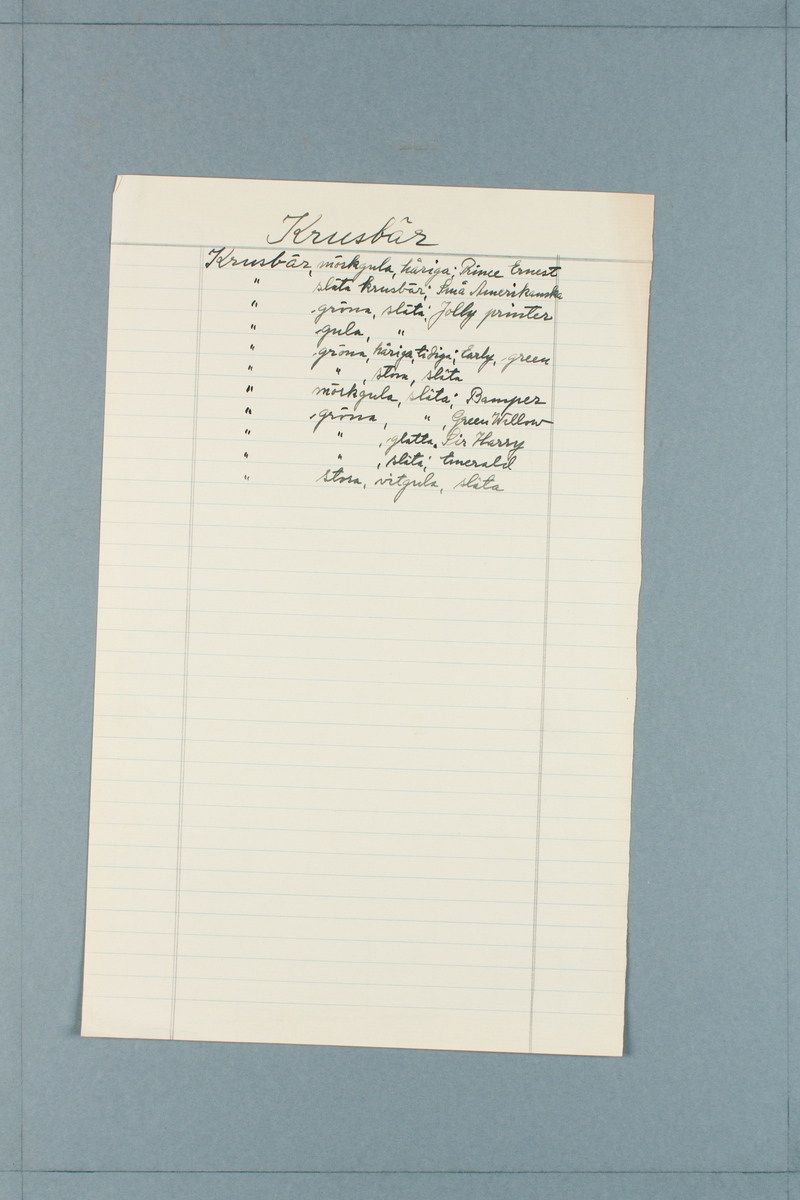 Krusbär
Krusbär, mörkgula, håriga; Prince Ernest
" släta krusbär; Små Amerikanska
" gröna, släta; Jolly printer
" gula, "
" gröna, håriga, tidiga; Early, green
" " , stora, släta
" mörkgula, släta; Bamper
" gröna, " , Green Willow
" " , glatta. Sir Harry
" " , släta; Emerald
" stora, vitgula, släta